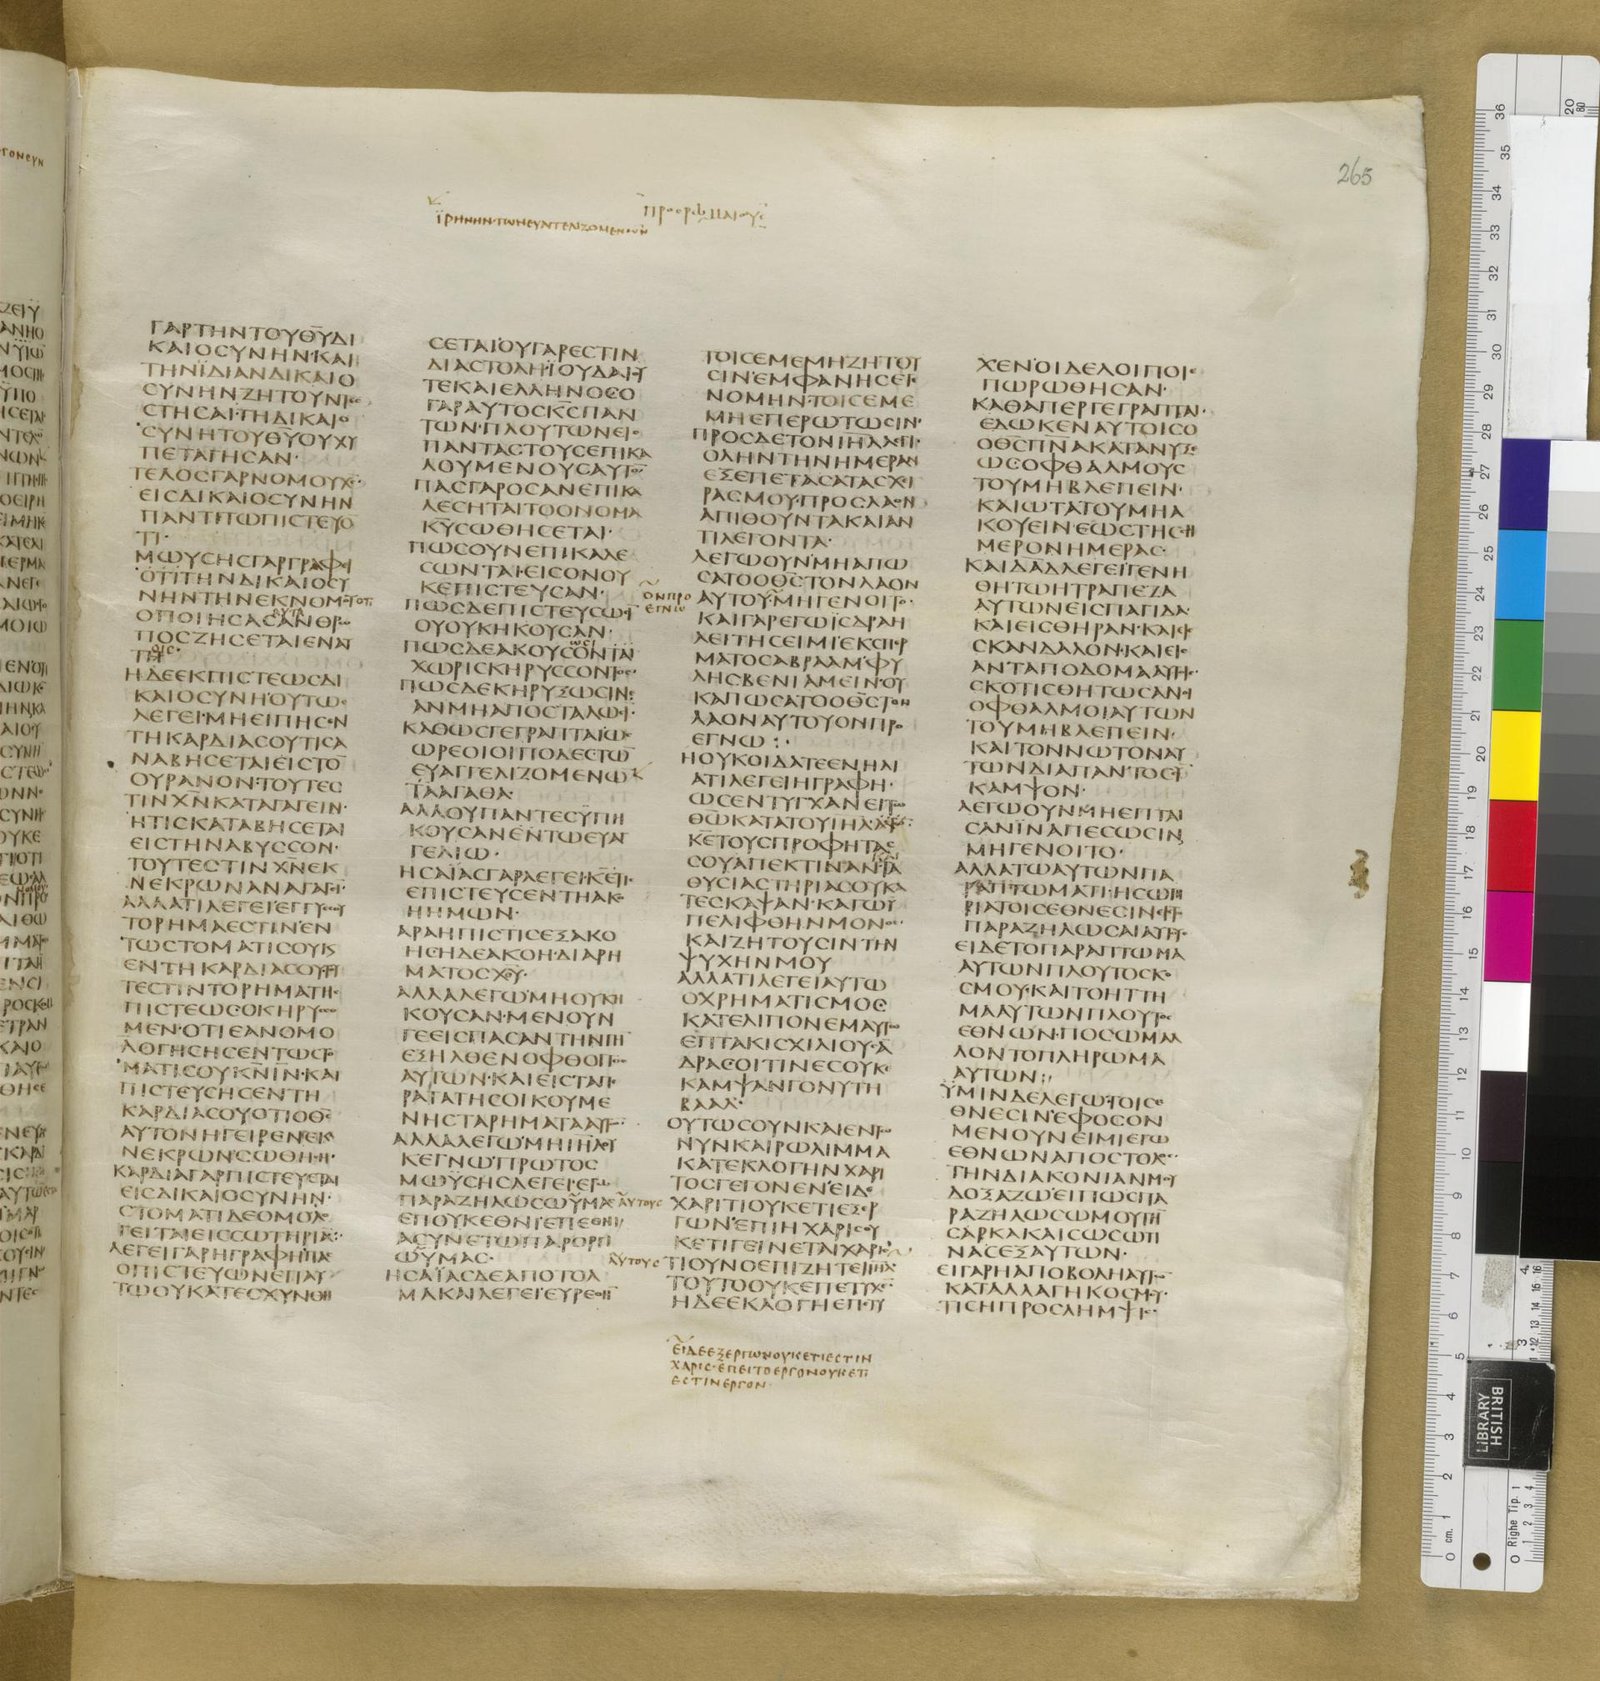 265
ΠΡΟΣΡΩΜΑΙΟΥΣ
ΪΡΗΝΗΝ·ΤΩΝΕΥΑΓΓΕΛΙΖΟΜΕΝΩΝ
ΓΑΡΤΗΝΤΟΥΘΥΔΙ
ΚΑΙΟCΥΝΗΝ·ΚΑΙ
ΤΗΝΪΔΙΑΝΔΙΚΑΙΟ
CΥΝΗΝΖΗΤΟΥΝΤΕC
CΤΗCΑΙ·ΤΗΔΙΚΑΙΟ
CΥΝΗΤΟΥΘΥΟΥΧΥ
ΠΕΤΑΓΗCΑΝ·
ΤΕΛΟCΓΑΡΝΟΜΟΥΧC
ΕΙCΔΙΚΑΙΟCΥΝΗΝ
ΠΑΝΤΙΤΩΠΙCΤΕΥΟ
ΤΙ·
ΜΩΥCΗCΓΑΡΓΡΑΦΕΙ
ΟΤΙΤΗΝΔΙΚΑΙΟCΥ
ΝΗΝΤΗΝΕΚΝΟΜΟΥ
ΟΠΟΙΗCΑCΑΝΘΡΩ
ΠΟCΖΗCΕΤΑΙΕΝΑΥ
ΤΗ
ΗΔΕΕΚΠΙCΤΕΩCΔΙ
ΚΑΙΟCΥΝΗΟΥΤΩC
ΛΕΓΕΙ·ΜΗΕΙΠΗCΕΝ
ΤΗΚΑΡΔΙΑCΟΥΤΙCΑ
ΝΑΒΗCΕΤΑΙΕΙCΤΟ
ΟΥΡΑΝΟΝ·ΤΟΥΤΕC
ΤΙΝΧΝΚΑΤΑΓΑΓΕΙΝ·
ΗΤΙCΚΑΤΑΒΗCΕΤΑΙ
ΕΙCΤΗΝΑΒΥCCΟΝ·
ΤΟΥΤΕCΤΙΝΧΝΕΚ
ΝΕΚΡΩΝΑΝΑΓΑΓΕΙ·
ΑΛΛΑΤΙΛΕΓΕΙΕΓΓΥCCΟΥ
ΤΟΡΗΜΑΕCΤΙΝΕΝ
ΤΩCΤΟΜΑΤΙCΟΥΚΑΙ
ΕΝΤΗΚΑΡΔΙΑCΟΥΤΟΥ
ΤΕCΤΙΝΤΟΡΗΜΑΤΗC
ΠΙCΤΕΩCΟΚΗΡΥCCΟ
ΜΕΝ·ΟΤΙΕΑΝΟΜΟ
ΛΟΓΗCΗCΕΝΤΩCΤΟ
ΜΑΤΙCΟΥΚΝΙΝ·ΚΑΙ
ΠΙCΤΕΥCΗCΕΝΤΗ
ΚΑΡΔΙΑCΟΥΟΤΙΟΘC
ΑΥΤΟΝΗΓΕΙΡΕΝΕΚ
ΝΕΚΡΩΝCΩΘΗCΗ·
ΚΑΡΔΙΑΓΑΡΠΙCΤΕΥΕΤΑΙ
ΕΙCΔΙΚΑΙΟCΥΝΗΝ·
CΤΟΜΑΤΙΔΕΟΜΟΛΟ
ΓΕΙΤΑΙΕΙCCΩΤΗΡΙΑ
ΛΕΓΕΙΓΑΡΗΓΡΑΦΗΠΑC
ΟΠΙCΤΕΥΩΝΕΠΑΥ
ΤΩΟΥΚΑΤΕCΧΥΝΘΗ
CΕΤΑΙΟΥΓΑΡΕCΤΙΝ
ΔΙΑCΤΟΛΗΪΟΥΔΑΙΟΥ
ΤΕΚΑΙΕΛΛΗΝΟCΟ
ΓΑΡΑΥΤΟCΚCΠΑΝ
ΤΩΝ·ΠΛΟΥΤΩΝΕΙC
ΠΑΝΤΑCΤΟΥCΕΠΙΚΑ
ΛΟΥΜΕΝΟΥCΑΥΤΟ
ΠΑCΓΑΡΟCΑΝΕΠΙΚΑ
ΛΕCΗΤΑΙΤΟΟΝΟΜΑ
ΚΥCΩΘΗCΕΤΑΙ·
ΠΩCΟΥΝΕΠΙΚΑΛΕ
CΩΝΤΑΙ·ΕΙCΟΝΟΥ
ΚΕΠΙCΤΕΥCΑΝ·
ΠΩCΔΕΠΙCΤΕΥCΩCΙ
ΟΥΟΥΚΗΚΟΥCΑΝ·
ΠΩCΔΕΑΚΟΥCΟΝΤΑΙ
ΧΩΡΙCΚΗΡΥCCΟΝΤΟC
ΠΩCΔΕΚΗΡΥΞΩCΙΝ
ΑΝΜΗΑΠΟCΤΑΛΩCΙ·
ΚΑΘΩCΓΕΓΡΑΠΤΑΙΩC
ΩΡΕΟΙΟΙΠΟΔΕCΤΩ
ΕΥΑΓΓΕΛΙΖΟΜΕΝΩ
ΤΑΑΓΑΘΑ·
ΑΛΛΟΥΠΑΝΤΕCΥΠΗ
ΚΟΥCΑΝΕΝΤΩΕΥΑΓ
ΓΕΛΙΩ·
ΗCΑΪΑCΓΑΡΛΕΓΕΙ·ΚΕΤΙC
ΕΠΙCΤΕΥCΕΝΤΗΑΚΟ
ΗΗΜΩΝ·
ΑΡΑΗΠΙCΤΙCΕΞΑΚΟ
ΗCΗΔΕΑΚΟΗ·ΔΙΑΡΗ
ΜΑΤΟCΧΥ·
ΑΛΛΑΛΕΓΩ·ΜΗΟΥΚΗ
ΚΟΥCΑΝ·ΜΕΝΟΥΝ
ΓΕΕΙCΠΑCΑΝΤΗΝΓΗ
ΕΞΗΛΘΕΝΟΦΘΟΓΓΟC
ΑΥΤΩΝ·ΚΑΙΕΙCΤΑΠΕ
ΡΑΤΑΤΗCΟΙΚΟΥΜΕ
ΝΗCΤΑΡΗΜΑΤΑΑΥΤΩ
ΑΛΛΑΛΕΓΩ·ΜΗΙΗΛΟΥ
ΚΕΓΝΩ·ΠΡΩΤΟC
ΜΩΫCΗCΛΕΓΕΙ·ΕΓΩ
ΠΑΡΑΖΗΛΩCΩΫΜΑC
ΕΠΟΥΚΕΘΝΙ·ΕΠΕΘΝΙ
ΑCΥΝΕΤΩΠΑΡΟΡΓΙ
ΩΫΜΑC·
ΗCΑΪΑCΔΕΑΠΟΤΟΛ
ΜΑΚΑΙΛΕΓΕΙ·ΕΥΡΕΘΗ
ΑΥΤΟΥC
ΑΥΤΟΥC
ΟΝΠΡΟ
ΕΓΝΩ
ΤΟΙCΕΜΕΜΗΖΗΤΟΥ
CΙΝ·ΕΜΦΑΝΗCΕΓΕ
ΝΟΜΗΝ·ΤΟΙCΕΜΕ
ΜΗΕΠΕΡΩΤΩCΙΝ·
ΠΡΟCΔΕΤΟΝΙΗΛΛΕΓΕΙ·
ΟΛΗΝΤΗΝΗΜΕΡΑΝ
ΕΞΕΠΕΤΑCΑΤΑCΧΕΙ
ΡΑCΜΟΥ·ΠΡΟCΛΑΟΝ
ΑΠΙΘΟΥΝΤΑΚΑΙΑΝ
ΤΙΛΕΓΟΝΤΑ·
ΛΕΓΩΟΥΝ·ΜΗΑΠΩ
CΑΤΟΟΘCΤΟΝΛΑΟΝ
ΑΥΤΟΥ·ΜΗΓΕΝΟΙΤΟ·
ΚΑΙΓΑΡΕΓΩΪCΔΡΑΗ
ΛΕΙΤΗCΕΙΜΙ·ΕΚCΠΕΡ
ΜΑΤΟCΑΒΡΑΑΜ·ΦΥ
ΛΗCΒΕΝΙΑΜΕΙΝ·ΟΥ
ΚΑΠΩCΑΤΟΟΘCΤΟΝ
ΛΑΟΝΑΥΤΟΥΟΝΠΡΟ
ΕΓΝΩ:·
ΗΟΥΚΟΙΔΑΤΕΕΝΗΛΙ
ΑΤΙΛΕΓΕΙΗΓΡΑΦΗ·
ΩCΕΝΤΥΓΧΑΝΕΙΤΩ
ΘΩΚΑΤΑΤΟΥΙΗΛ
ΚΕΤΟΥCΠΡΟΦΗΤΑC
CΟΥΑΠΕΚΤΙΝΑΝ·ΤΑ
ΘΥCΙΑCΤΗΡΙΑCΟΥΚΑ
ΤΕCΚΑΨΑΝ·ΚΑΓΩΫ
ΠΕΛΙΦΘΗΝΜΟΝΟC·
ΚΑΙΖΗΤΟΥCΙΝΤΗΝ
ΨΥΧΗΝΜΟΥ
ΑΛΛΑΤΙΛΕΓΕΙΑΥΤΩ
ΟΧΡΗΜΑΤΙCΜΟC
ΚΑΤΕΛΙΠΟΝΕΜΑΥΤΩ
ΕΠΤΑΚΙCΧΙΛΙΟΥCΑ
ΔΡΑCΟΙΤΙΝΕCΟΥΚΕ
ΚΑΜΨΑΝΓΟΝΥΤΗ
ΒΑΑΛ·
ΟΥΤΩCΟΥΝΚΑΙΕΝΤΩ
ΝΥΝΚΑΙΡΩΛΙΜΜΑ
ΚΑΤΕΚΛΟΓΗΝΧΑΡΙ
ΤΟCΓΕΓΟΝΕΝ·ΕΙΔΕ
ΧΑΡΙΤΙΟΥΚΕΤΙΕΞΕΡ
ΓΩΝ·ΕΠΙΗΧΑΡΙCΟΥ
ΚΕΤΙΓΕΙΝΕΤΑΙΧΑΡΙC
ΤΙΟΥΝΟΕΠΙΖΗΤΕΙΙΗΛ
ΤΟΥΤΟΟΥΚΕΠΕΤΥΧΕ
ΗΔΕΕΚΛΟΓΗΕΠΕΤΥ
ΕΙΔΕΕΞΕΡΓΩΝΟΥΚΕΤΙΕCΤΙΝ
ΧΑΡΙC·ΕΠΕΙΤΟΕΡΓΟΝΟΥΚΕΤΙ
ΕCΤΙΝΕΡΓΟΝ
ΧΕΝ·ΟΙΔΕΛΟΙΠΟΙ
ΠΩΡΩΘΗCΑΝ·
ΚΑΘΑΠΕΡΓΕΓΡΑΠΤΑΙ·
ΕΔΩΚΕΝΑΥΤΟΙCΟ
ΟΘCΠΝΑΚΑΤΑΝΥΞΕ
ΩCΟΦΘΑΛΜΟΥC
ΤΟΥΜΗΒΛΕΠΕΙΝ·
ΚΑΙΩΤΑΤΟΥΜΗΑ
ΚΟΥΕΙΝ·ΕΩCΤΗCCΗ
ΜΕΡΟΝΗΜΕΡΑC·
ΚΑΙΔΑΔΛΕΓΕΙΓΕΝΗ
ΘΗΤΩΗΤΡΑΠΕΖΑ
ΑΥΤΩΝΕΙCΠΑΓΙΔΑ·
ΚΑΙΕΙCΘΗΡΑΝ·ΚΑΙΕΙ
CΚΑΝΔΑΛΟΝ·ΚΑΙΕΙC
ΑΝΤΑΠΟΔΟΜΑΑΥΤΟΙC·
CΚΟΤΙCΘΗΤΩCΑΝΟΙ
ΟΦΘΑΛΜΟΙΑΥΤΩΝ
ΤΟΥΜΗΒΛΕΠΕΙΝ·
ΚΑΙΤΟΝΝΩΤΟΝΑΥ
ΤΩΝΔΙΑΠΑΝΤΟCCΥ
ΚΑΜΨΟΝ·
ΛΕΓΩΟΥΝ·ΜΗΕΠΤΑΙ
CΑΝΪΝΑΠΕCΩCΙΝ
ΜΗΓΕΝΟΙΤΟ·
ΑΛΛΑΤΩΑΥΤΩΝΠΑ
ΡΑΠΤΩΜΑΤΙ·ΗCΩΤΗ
ΡΙΑΤΟΙCΕΘΝΕCΙΝ·ΕΙC
ΠΑΡΑΖΗΛΩCΑΙΑΥΤΟΥC·
ΕΙΔΕΤΟΠΑΡΑΠΤΩΜΑ
ΑΥΤΩΝΠΛΟΥΤΟCΚΟ
CΜΟΥ·ΚΑΙΤΟΗΤΤΗ
ΜΑΑΥΤΩΝΠΛΟΥΤΟC
ΕΘΝΩΝ·ΠΟCΩΜΑΛ
ΛΟΝΤΟΠΛΗΡΩΜΑ
ΑΥΤΩΝ:
ΫΜΙΝΔΕΛΕΓΩΤΟΙCΕ
ΘΝΕCΙΝ·ΕΦΟCΟΝ
ΜΕΝΟΥΝΕΙΜΙΕΓΩ
ΕΘΝΩΝΑΠΟCΤΟΛΟC
ΤΗΝΔΙΑΚΟΝΙΑΝΜΟΥ
ΔΟΞΑΖΩ·ΕΙΠΩCΠΑ
ΡΑΖΗΛΩCΩΜΟΥΤΗ
CΑΡΚΑΚΑΙCΩCΩΤΙ
ΝΑCΕΞΑΥΤΩΝ·
ΕΙΓΑΡΗΑΠΟΒΟΛΗΑΥΤΩ
ΚΑΤΑΛΛΑΓΗΚΟCΜΟΥ·
ΤΙCΗΠΡΟCΛΗΜΨΙC
BRITISH
LIBRARY